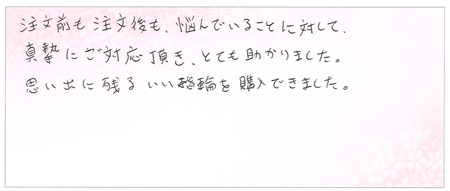 注文前も注文後も、悩んでいることに対して、
真摯にご対応頂き、とても助かりました。
思い出に残るいい指輪を購入できました。